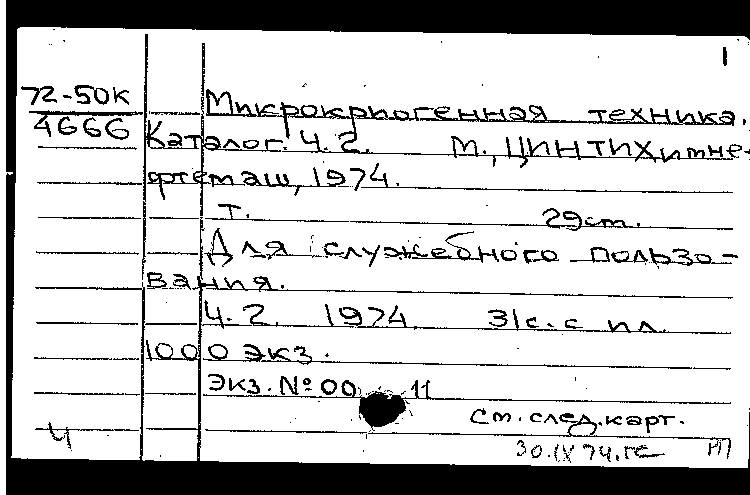 1
72-50К
4666
Микрокриогенная техника.
Каталог. Ч. 2. М., ЦИНТИХимне-
фтемаш, 1974.
т. 29ст.
Для служебного пользо-
вания.
Ч. 2. 1974. 31с. с ил.
1000 экз.
Экз. № 00 11
См. след. карт.
Ч
30.IX 74.
РП